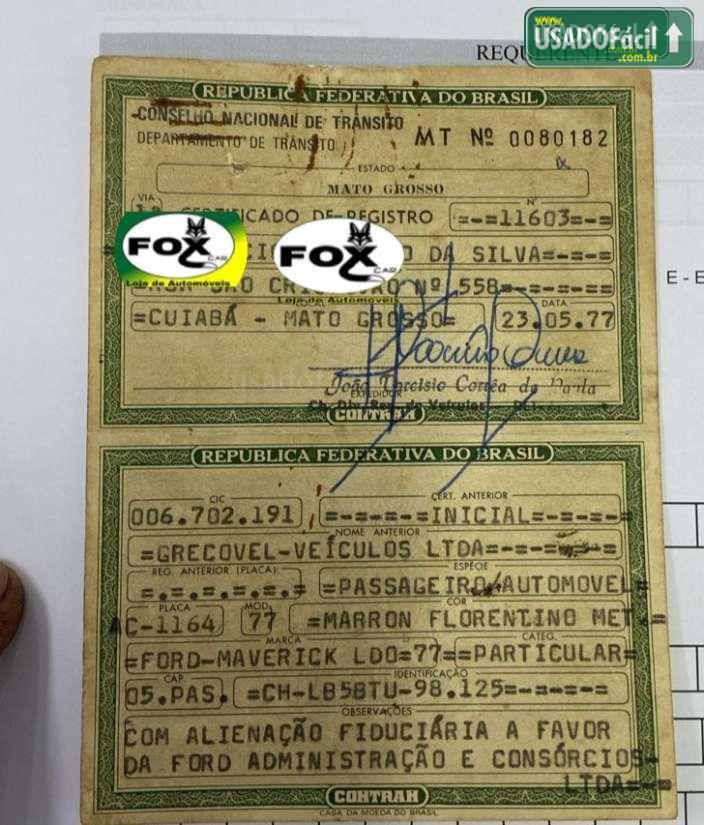 www.
USADOFácil
.com.br
REQUERENTE
REPUBLICA FEDERATIVA DO BRASIL
CONSELHO NACIONAL DE TRÂNSITO
DEPARTAMENTO DE TRÂNSITO
MT Nº 0080182
ESTADO
MATO GROSSO
VIA
CERTIFICADO DE REGISTRO
Nº
=-=11603=-=
FOX CAR
Loja de Automóveis
FOX CAR
Loja de Automóveis
DA SILVA=-=-=
Nº 558=-=-=-==
=CUIABÁ - MATO GROSSO=
DATA
23.05.77
João Tarcisio Corrêa de
EXPEDIDOR
CONTRAN
REPUBLICA FEDERATIVA DO BRASIL
CIC
006.702.191
CERT. ANTERIOR
=-=-=-=INICIAL=-=-=-=
NOME ANTERIOR
=GRECOVEL-VEÍCULOS LTDA=-=-=
REG. ANTERIOR (PLACA)
=.=.=.=.=.=
ESPÉCIE
=PASSAGEIRO/AUTOMOVEL=
PLACA
AC-1164
MOD.
77
COR
=MARRON FLORENTINO MET.=
MARCA
=FORD-MAVERICK LDO=77=
CATEG.
=PARTICULAR=
CAP.
05.PAS.
IDENTIFICAÇÃO
=CH-LB5BTU-98.125=-=-=-=
OBSERVAÇÕES
COM ALIENAÇÃO FIDUCIÁRIA A FAVOR
DA FORD ADMINISTRAÇÃO E CONSÓRCIOS-
LTDA=-=-=
CONTRAN
CASA DA MOEDA DO BRASIL